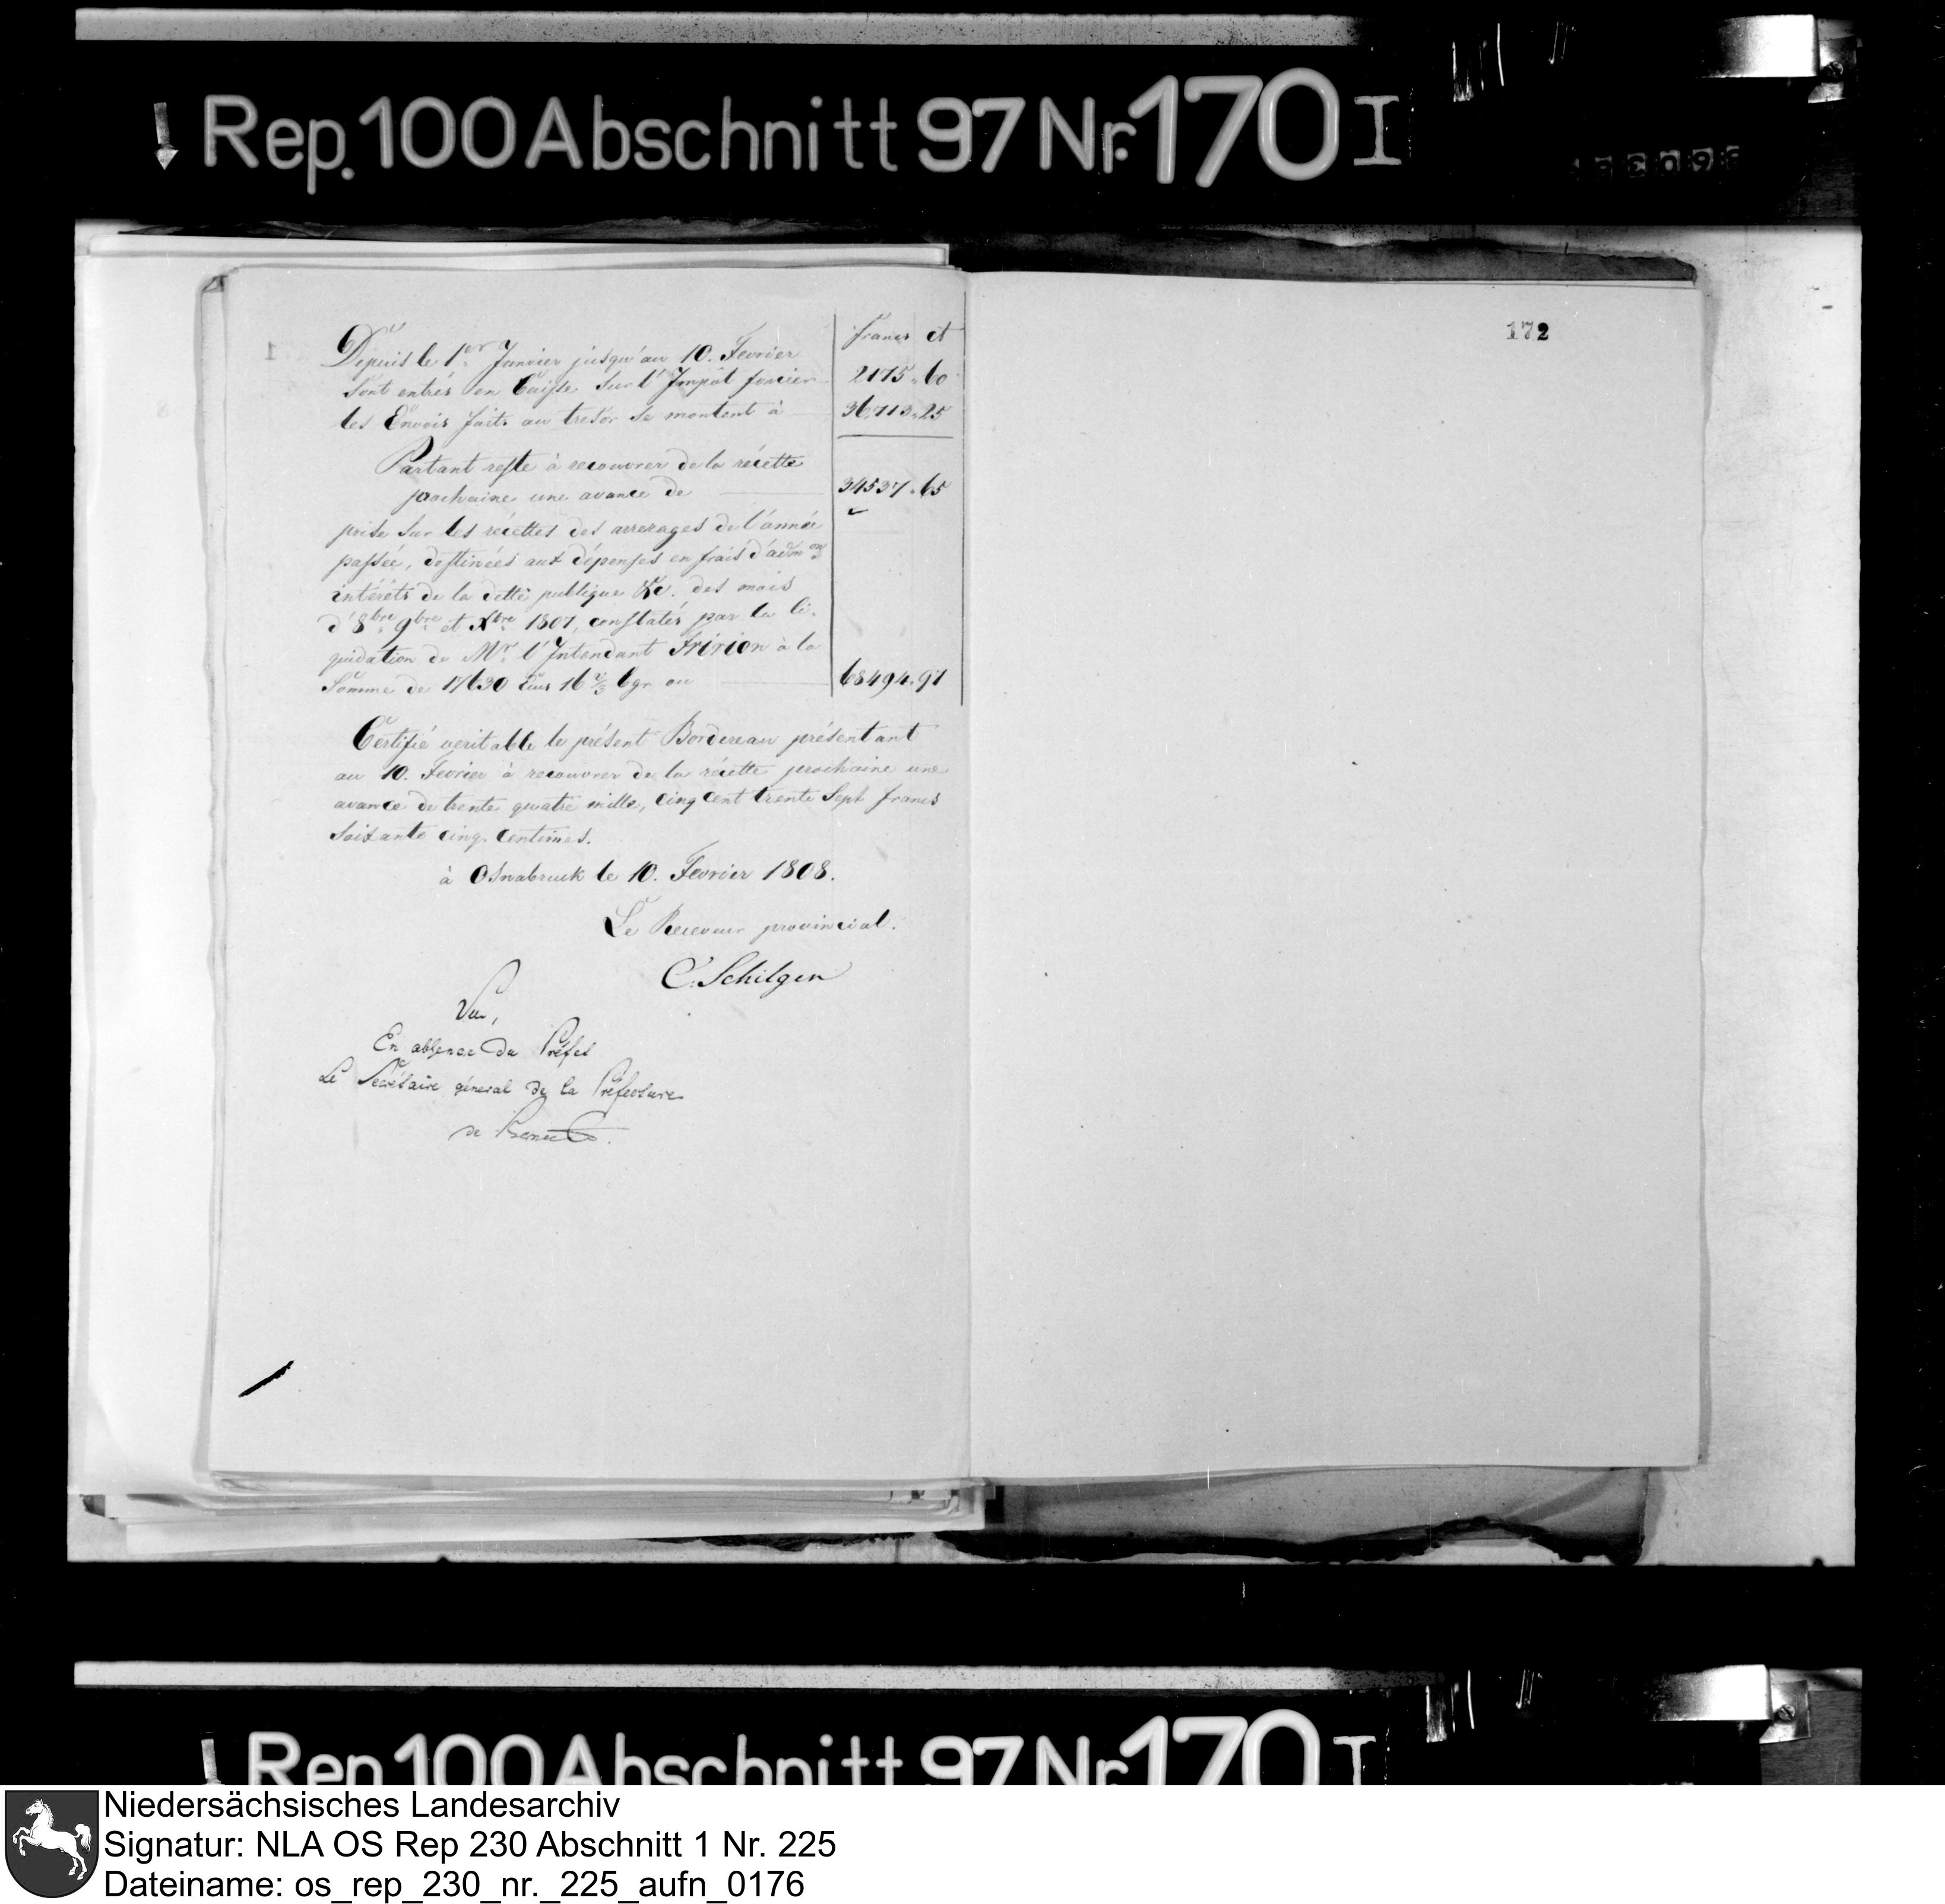 Rep. 100 Abschnitt 97 Nr. 170 I
172
francs ct
Depuis le 1er Janvier jusqu'au 10. Fevrier
sont entrés en Caisse sur l'Impôt foncier 2175 " 60
les Envois faits au tresor se montent à 36,713 " 25
Partant reste à recouvrer de la récette
prochaine une avance de 34537 " 65
prise sur les récettes des arrerages de l'année
passée, destinées aux dépenses en frais d'admon
intérèts de la dette publique &c. des mois
d'8bre 9bre et Xbre 1807, constatés par la li-
quidation de Mr. l'Intendant Fririon à la
Somme de 17630 écus 16 2/3 bgr ou 68494 " 97
Certifié veritable le présent Bordereau présentant
au 10. Fevrier à recouvrer de la récette prochaine une
avance de trente quatre mille, cinq cent trente Sept francs
soixante cinq centimes.
à Osnabruck le 10. Fevrier 1808.
Le Receveur provincial.
C. Schilgen
Vu,
En absence du Préfet
Le Secrétaire géneral de la Préfecture
de
Rep. 100 Abschnitt 97 Nr. 170 I
Niedersächsisches Landesarchiv
Signatur: NLA OS Rep 230 Abschnitt 1 Nr. 225
Dateiname: os_rep_230_nr._225_aufn_0176